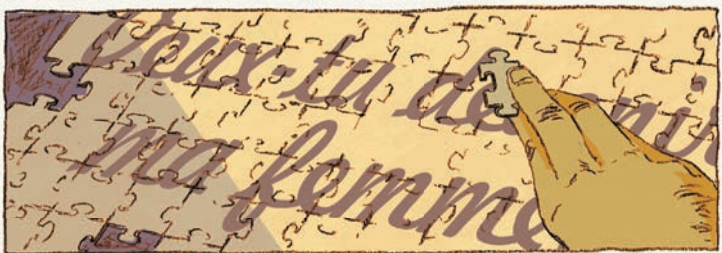 Veux-tu devenir
ma femme